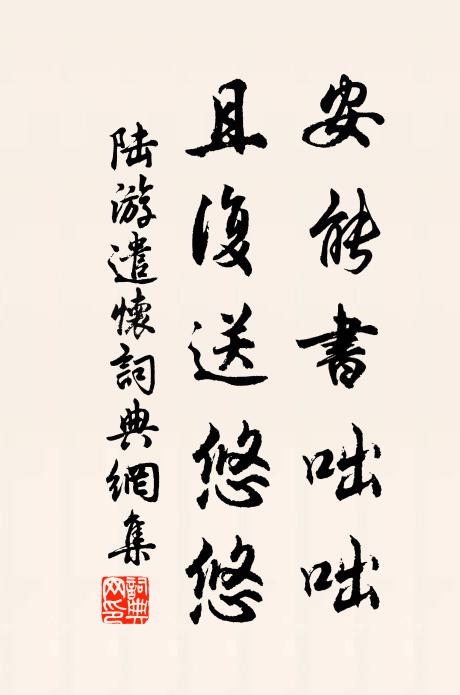 安能書咄咄
且復送悠悠
陸游遣懷詞典網集
詞典網印